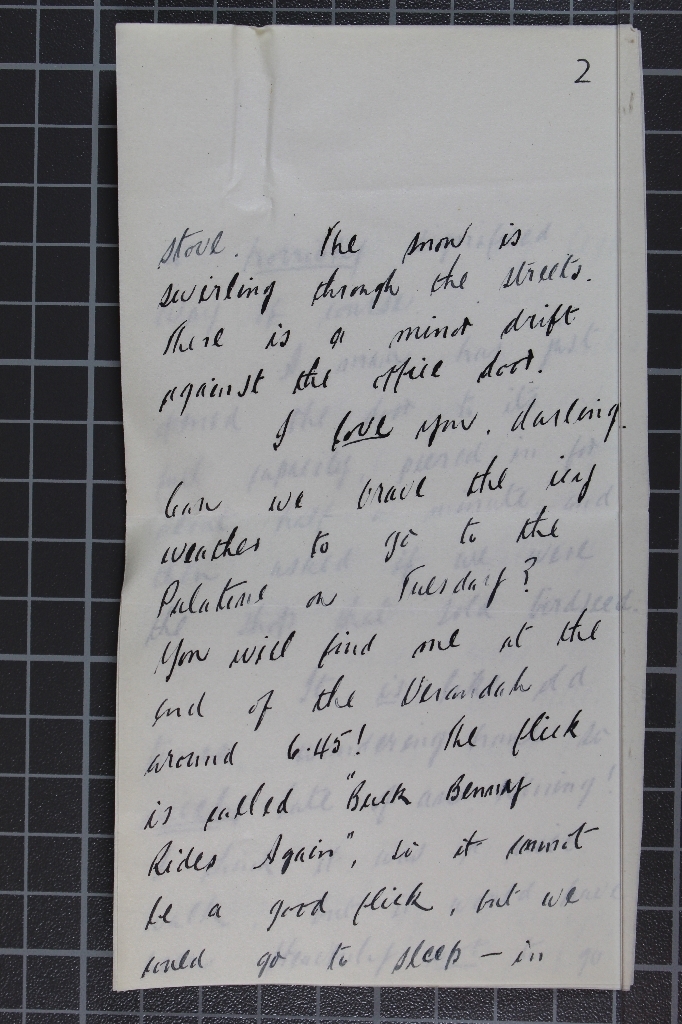 2
stove. The snow is
swirling through the streets.
There is a minor drift
against the office door.
I love you, darling.
Can we brave the icy
weather to go to the
Palatine on Tuesday?
You will find me at the
end of the Verandah
around 6.45! The flick
is called "Buck Benny
Rides Again", so it cannot
be a good flick, but we
could go to sleep – in